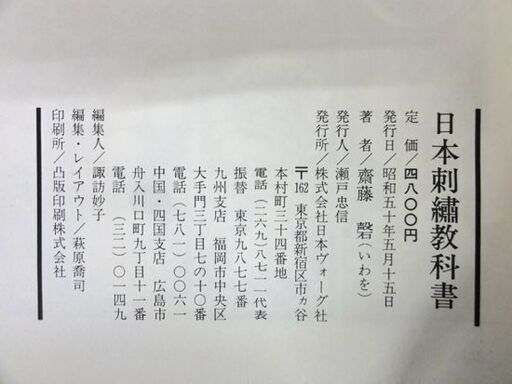 日本刺繡教科書
定　価／四八〇〇円
発行日／昭和五十年五月十五日
著　者／齋藤　磬（いわを）
発行人／瀬戸忠信
発行所／株式会社日本ヴォーグ社
〒162 東京都新宿区市ヵ谷
本村町三十四番地
電話（二六九）八七一一代表
振替　東京九八七七番
九州支店　福岡市中央区
大手門三丁目七の十〇番
電話（七八一）〇〇六一
中国・四国支店　広島市
舟入川口町九丁目十一番
電話（三二）〇一四九
編集人／諏訪妙子
編集・レイアウト／萩原喬司
印刷所／凸版印刷株式会社